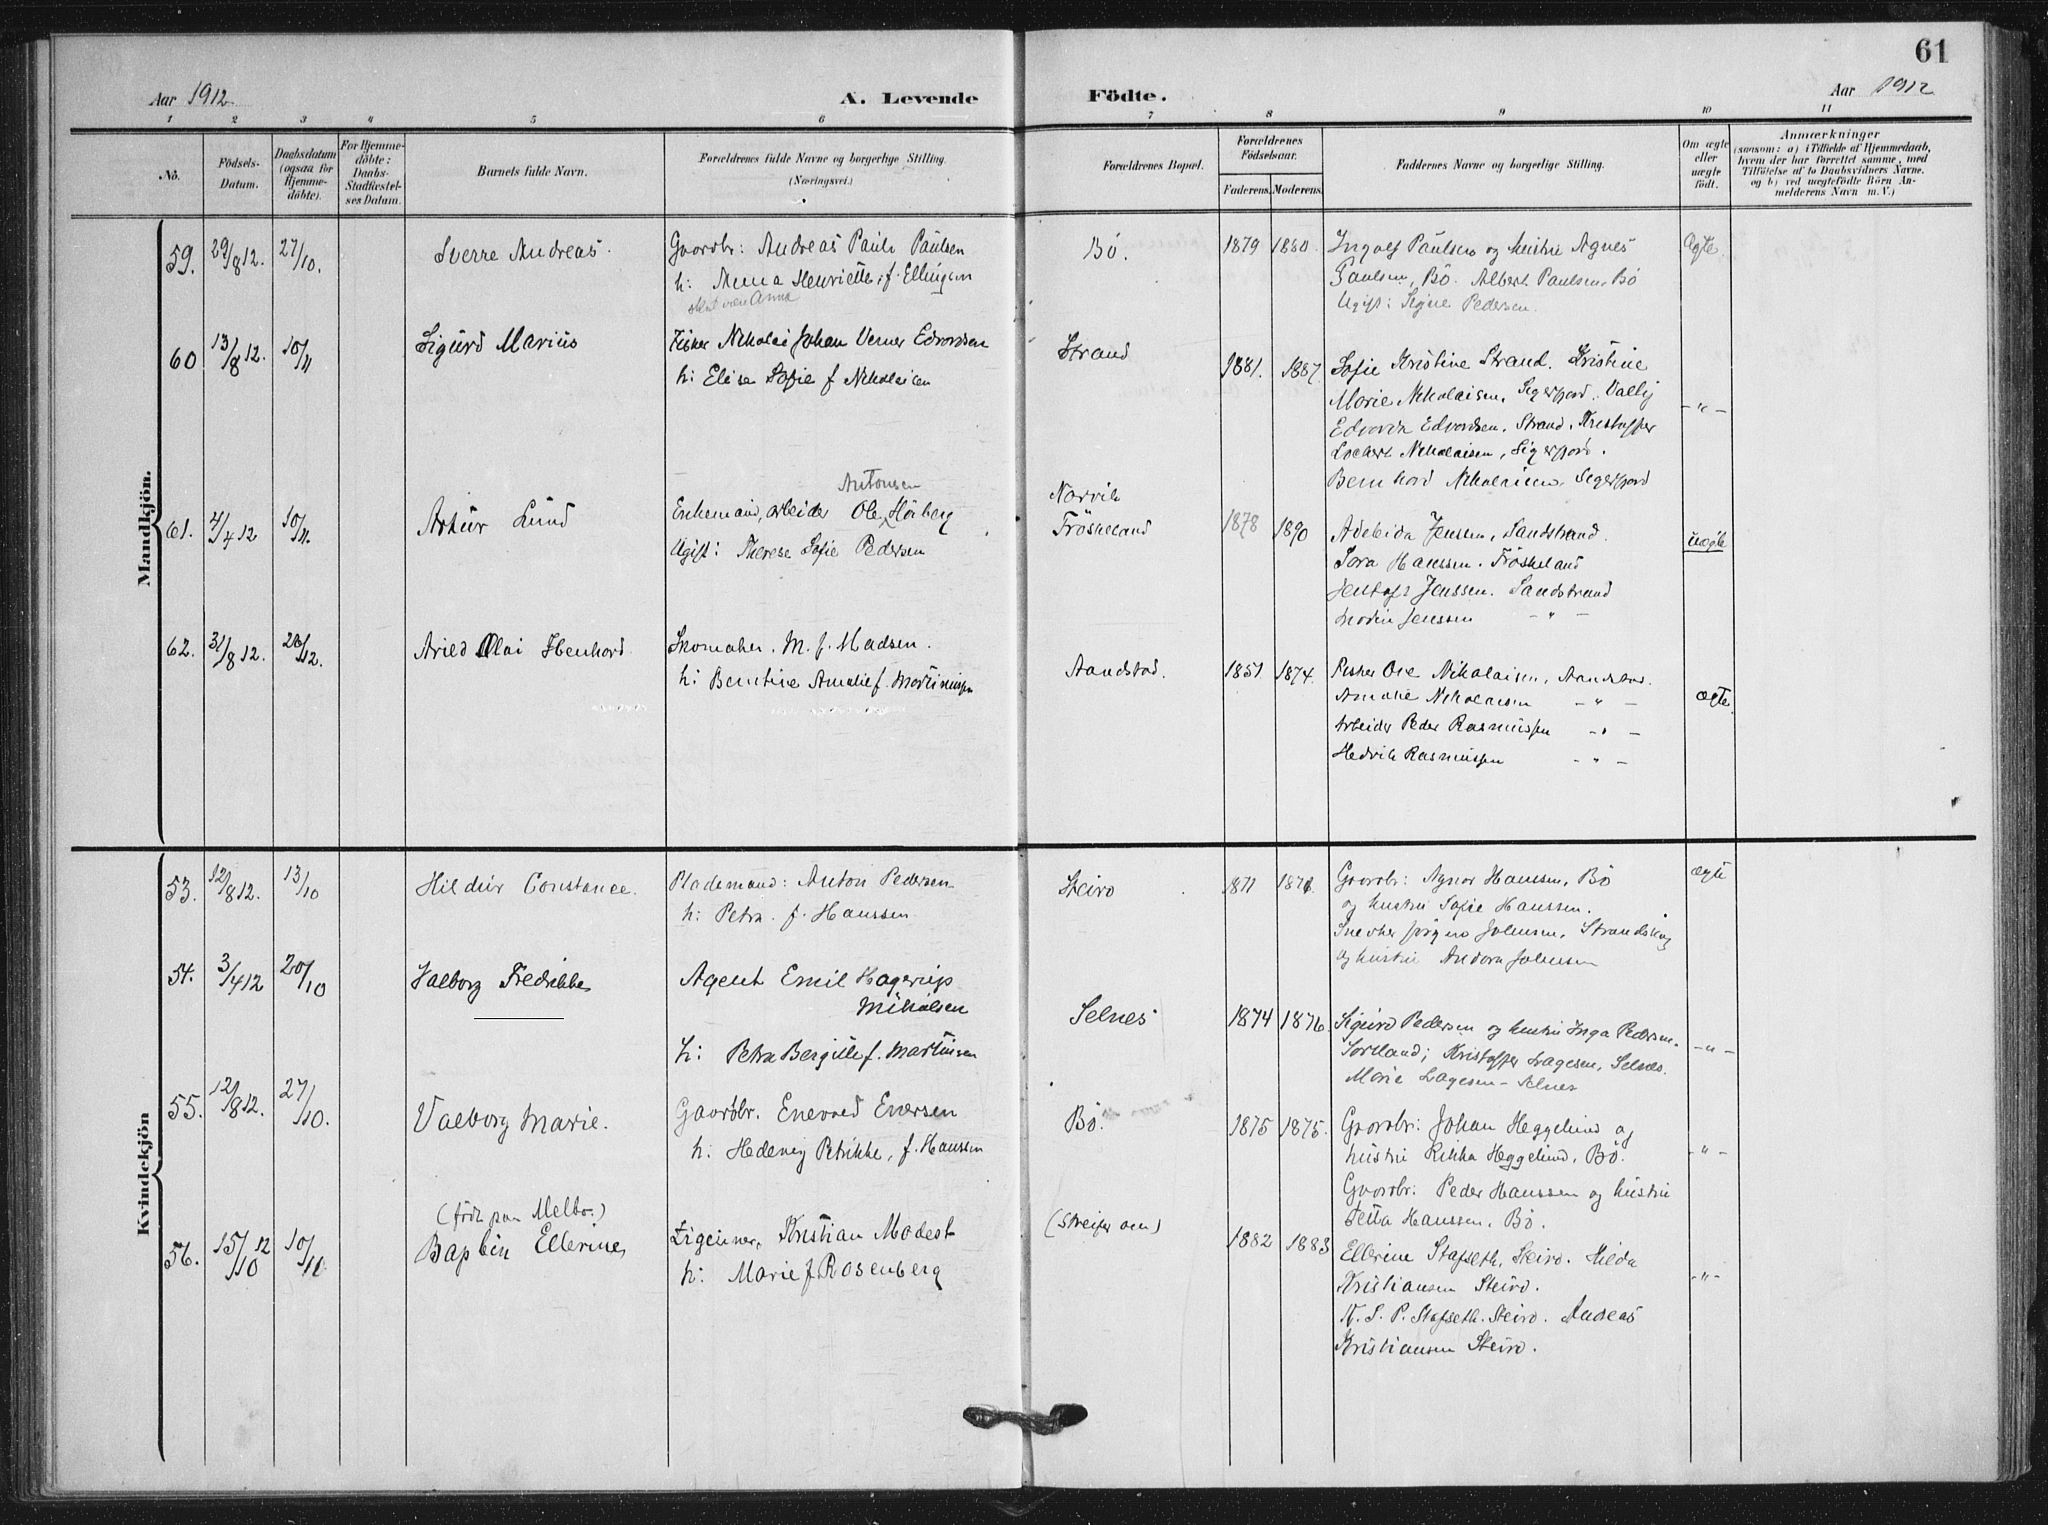 61
Aar 1912
A. Levende
Födte.
Aar 1912
1 2 3 4 5 6 7 8 9 10 11
No.
Födsels-
Datum.
Daabsdatum
(ogsaa for
Hjemme-
döbte).
For Hjemme-
döbte:
Daabs-
Stadfæstel-
ses Datum.
Barnets fulde Navn.
Forældrenes fulde Navne og borgerlige Stilling.
(Næringsvei.)
Forældrenes Bopæl.
Forældrenes
Födselsaar.
Faderens. Moderens.
Faddernes Navne og borgerlige Stilling.
Om ægte
eller
uægte
födt.
Anmærkninger
(saasom: a) i Tilfælde af Hjemmedaab,
hvem der har forrettet samme, med
Tilföielse af to Daabsvidners Navne.
og b) ved uægtefödte Börn An-
melderens Navn m. V.)
Mandkjön.
59. 29/8 12. 27/10. Sverre Andreas.
Gaardbr: Andreas Pauli Paulsen
h: Anna Henriette, f. Ellingsen
skal være Anna
Bö. 1879 1880.
Ingolf Paulsen og hustru Agnes
Paulsen, Bö. Albert Paulsen, Bö
Ugift: Signe Pedersen.
Ægte.
60 13/8 12. 10/11 Sigurd Marius
Fisker Nikolai Johan Verner Edvardsen
h: Elise Sofie f Nikolaisen
Strand 1881. 1887
Sofie Kristine Strand. Kristine
Marie Nikolaisen, Sigerfjord.
Edvardsen, Strand. Kristoffer
Lockert Nikolaisen, Sigerfjord.
Bernhard Nikolaisen Sigerfjord
- " -
61. 4/4 12 10/11. Artur Lund
Antonsen
Enkemand, arbeider Ole Höiberg
Ugift: Therese Sofie Pedersen
Narvik
Fröskeland 1878 1890
Adeleida Jenssen, Sandstrand.
Hanssen. Fröskeland
Jenssen. Sandstrand
Jenssen - " -
uægte
62. 31/8 12. 26/12. Arild Olai Henhard.
Skomaker. M. J. Madsen.
h: Berntine Amalie f. Martinussen
Aandstad. 1851 1874.
Fisker Ole Nikolaisen, Aandstad.
Amalie Nikolaisen - " -
Arbeider Peder Rasmussen - " -
Hedvik Rasmussen - " -
ægte.
Kvindekjön
53. 12/8 12. 13/10 Hildur Constance.
Plademand: Anton Pedersen
h: Petra. f. Hanssen
Steiro 1871 1871.
Gaardbr: Agnar Hanssen, Bö
og hustru Sofie Hanssen.
Snedker Jörgen Johnsen, Strandskog
og hustru Andora Johnsen
ægte
54. 3/4 12 20/10 Valborg Fredrikke
Agent Emil Hagerup
Mikalsen
h: Petra Bergitte f. Martinsen
Selnes 1874 1876.
Sigurd Pedersen og hustru Inga Pedersen.
Sortland; Kristoffer Lagesen, Selnes.
Marie Lagesen - Selnes
- " -
55. 12/8 12. 27/10. Valborg Marie.
Gaardbr. Enevold Enersen
h: Hedevig Petrikke, f. Hanssen
Bö. 1875 1875.
Gaardbr: Johan Heggelund og
hustru Rikka Heggelund, Bö.
Gaardbr: Peder Hanssen og hustru
Jetta Hanssen, Bö.
- " -
(födt paa Melbo.)
56. 15/10 12 10/10 Ellerine
Zigeuner, Kristian Modest
h: Marie f. Rosenberg
(Streifer om) 1882 1883
Ellerine Stafseth, Steiro. Hilda
Kristiansen Steiro.
N. S. P. Stafseth. Steiro. Andreas
Kristiansen Steiro.
- " -